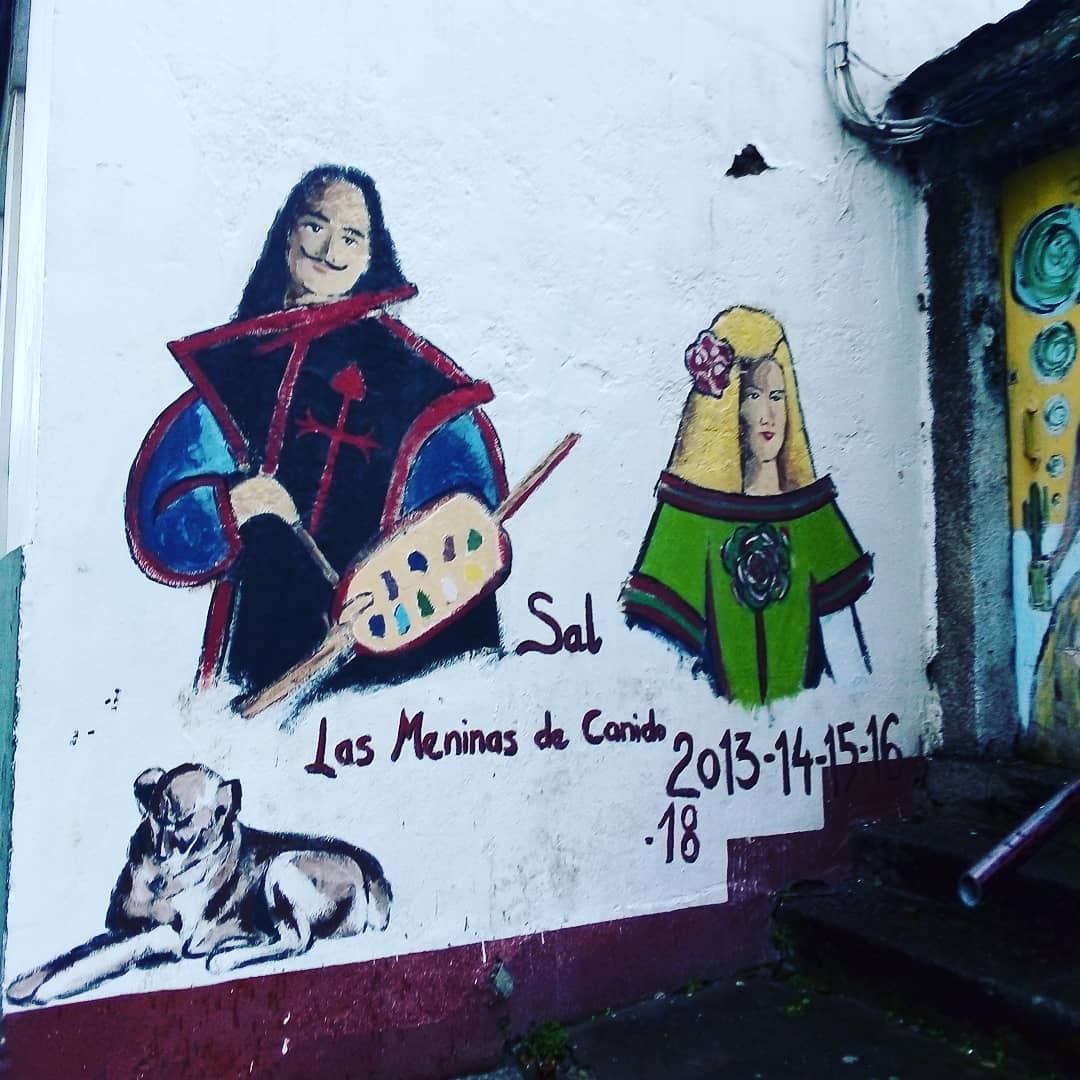 Sal
Las Meninas de Canido
2013-14-15-16
·18